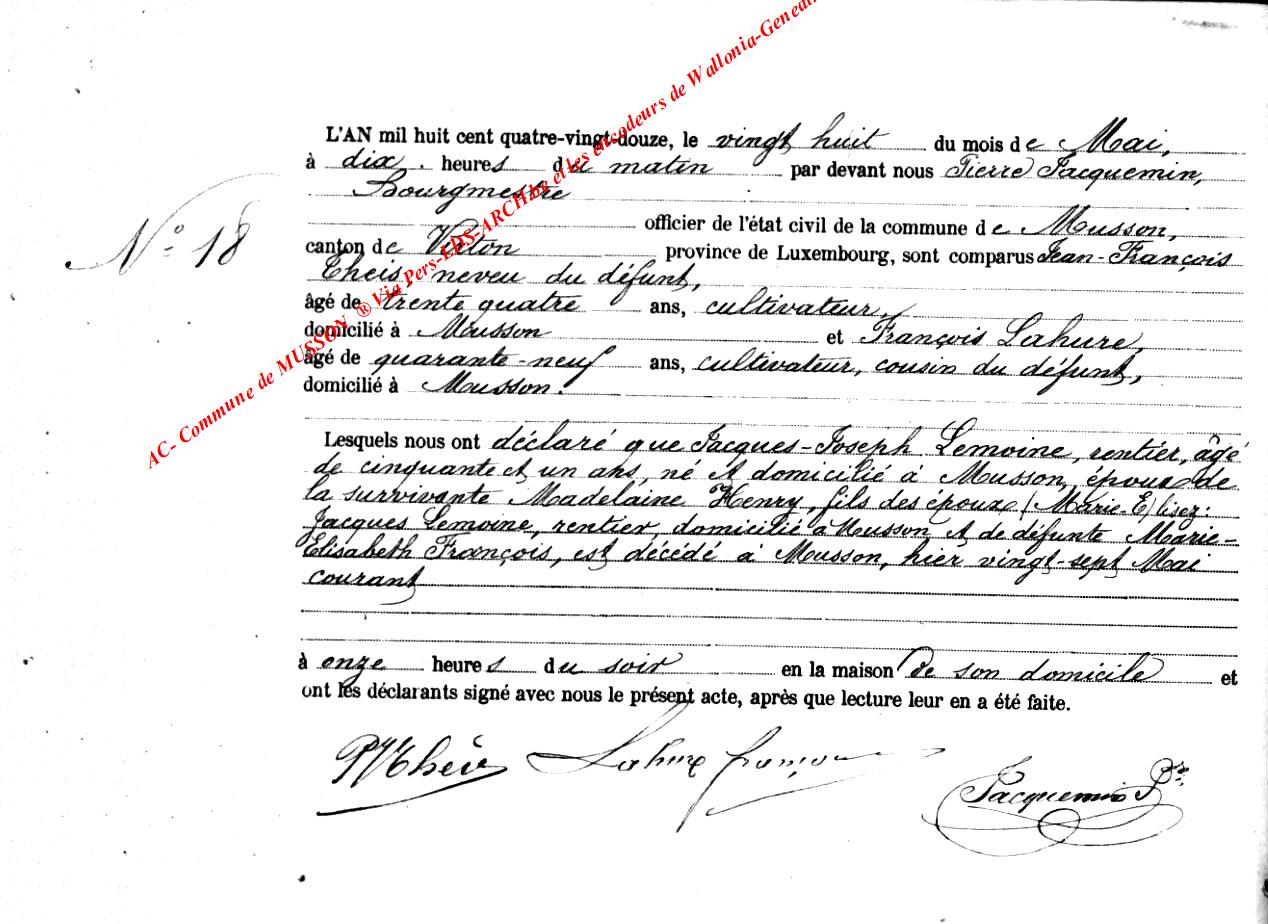 AC- Commune de MUSSON ® Via Pers-EDS-ARCHive et les encodeurs de Wallonia-Genealo
L'AN mil huit cent quatre-vingt-douze, le vingt huit du mois de Mai,
à dix heures du matin par devant nous Pierre Jacquemin,
Bourgmestre
officier de l'état civil de la commune de Musson,
N° 18
canton de Virton province de Luxembourg, sont comparus Jean-François
Theis neveu du défunt,
âgé de trente quatre ans, cultivateur,
domicilié à Musson et François Lahure,
âgé de quarante-neuf ans, cultivateur, cousin du défunt,
domicilié à Musson.
Lesquels nous ont déclaré que Jacques-Joseph Lemoine, rentier, âgé
de cinquante et un ans, né et domicilié à Musson, époux de
la survivante Madelaine Henry, fils des époux (Marie-E)lisez:
Jacques Lemoine, rentier, domicilié à Musson, et de défunte Marie-
Elisabeth François, est décédé à Musson, hier vingt-sept Mai
courant
à onze heures du soir en la maison de son domicile et
ont les déclarants signé avec nous le présent acte, après que lecture leur en a été faite.
Lahure françois
Jacquemin P. Bre.